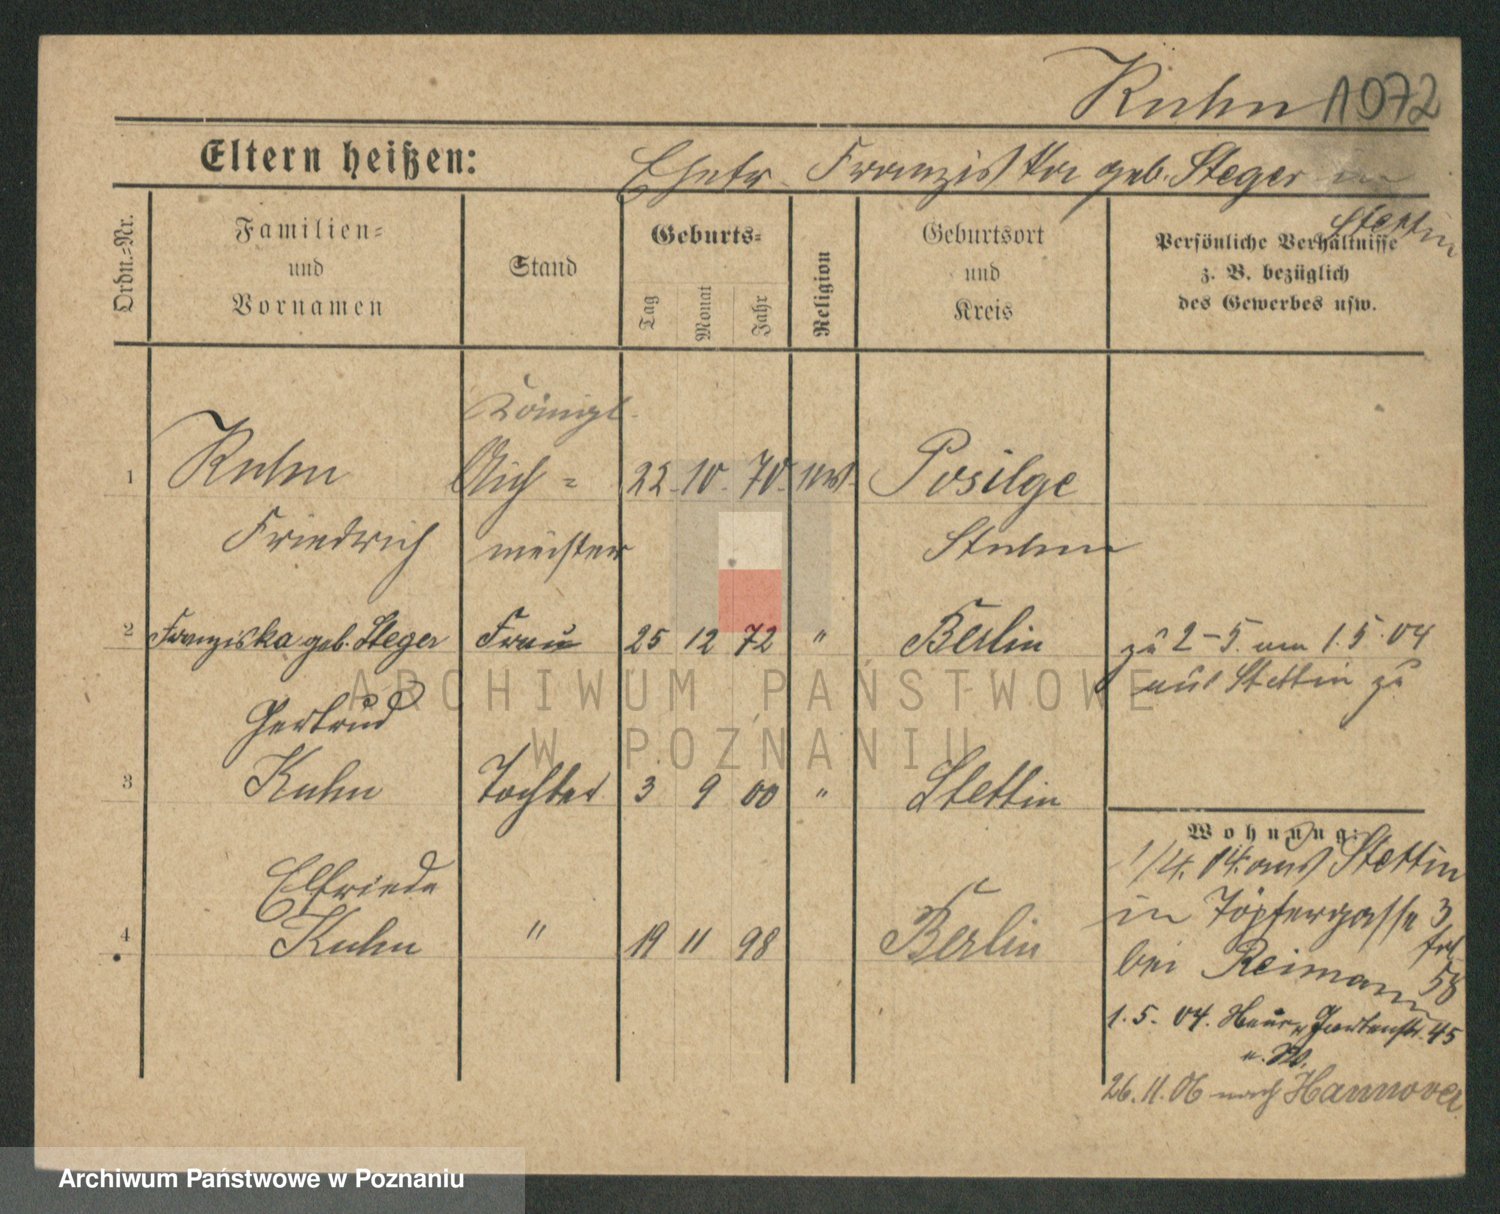 Kuhn 1072
Eltern heißen: Ehefr. Franziska geb. Steger in
Stettin
Ordn.-Nr.
Familien-
und
Vornamen
Stand
Geburts-
Tag
Monat
Jahr
Religion
Geburtsort
und
Kreis
Persönliche Verhältnisse
z. B. bezüglich
des Gewerbes usw.
Königl.
1 Kuhn Aich- 22. 10. 70. Posilge
Friedrich meister Stuhm
2 Franziska geb. Steger Frau 25 12 72 " Berlin zu 2-5. am 1.5.04
aus Stettin zu
Gertrud
3 Kuhn Tochter 3 9 00 " Stettin
Wohnung:
1/4. 04. aus Stettin
Elfriede in Töpfergasse 3
4 Kuhn " 19 11 98 Berlin
bei Reimann 58
1. 5. 04. Gartenstr. 45
26. 11. 06 nach Hannover
ARCHIWUM PAŃSTWOWE
W POZNANIU
Archiwum Państwowe w Poznaniu